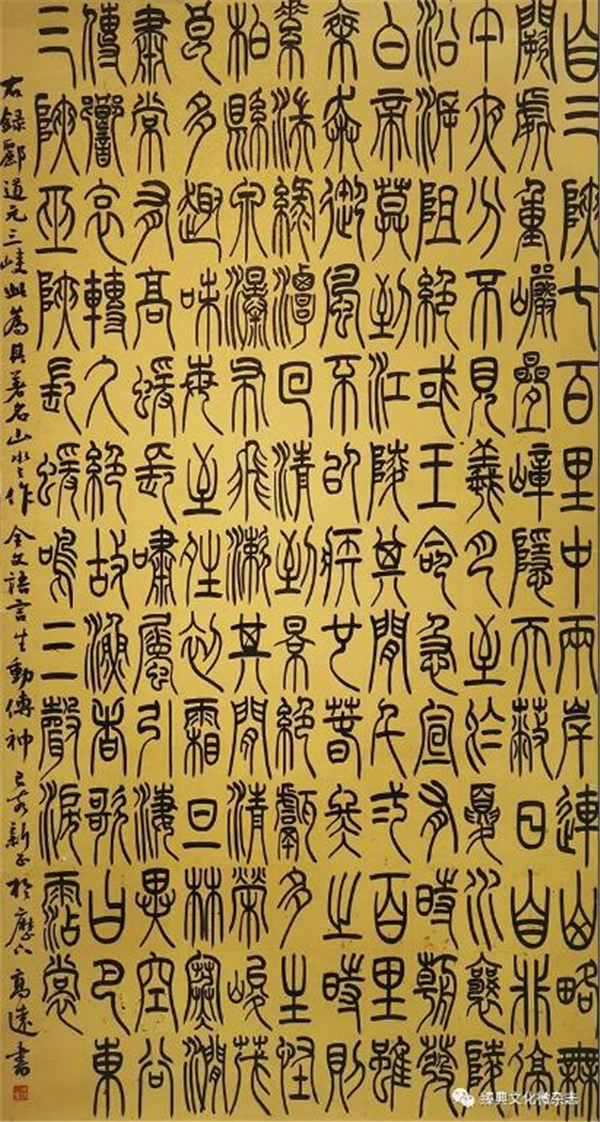 自三陝七百里中兩岸連山略無
闕處重巖疊嶂隱天蔽日自非停
午夜分不見羲月至於夏水襄陵
沿泝阻絕或王命急宣有時朝發
白帝莫到江陵其間千二百里雖
乘奔御風不以疾也春冬之時則
素湍綠潭回清到景絕巘多生怪
柏縣泉瀑布飛漱其間清榮峻茂
良多趣味每至晴初霜旦林寒澗
肅常有高蝯長嘯屬引淒異空谷
傳響哀轉久絕故漁者歌曰巴東
三陝巫陝長蝯鳴三聲淚霑裳
右錄酈道元三峽此為其著名山水之作全文語言生動傳神己亥新正於歷下高遠書
臻典文化微杂志